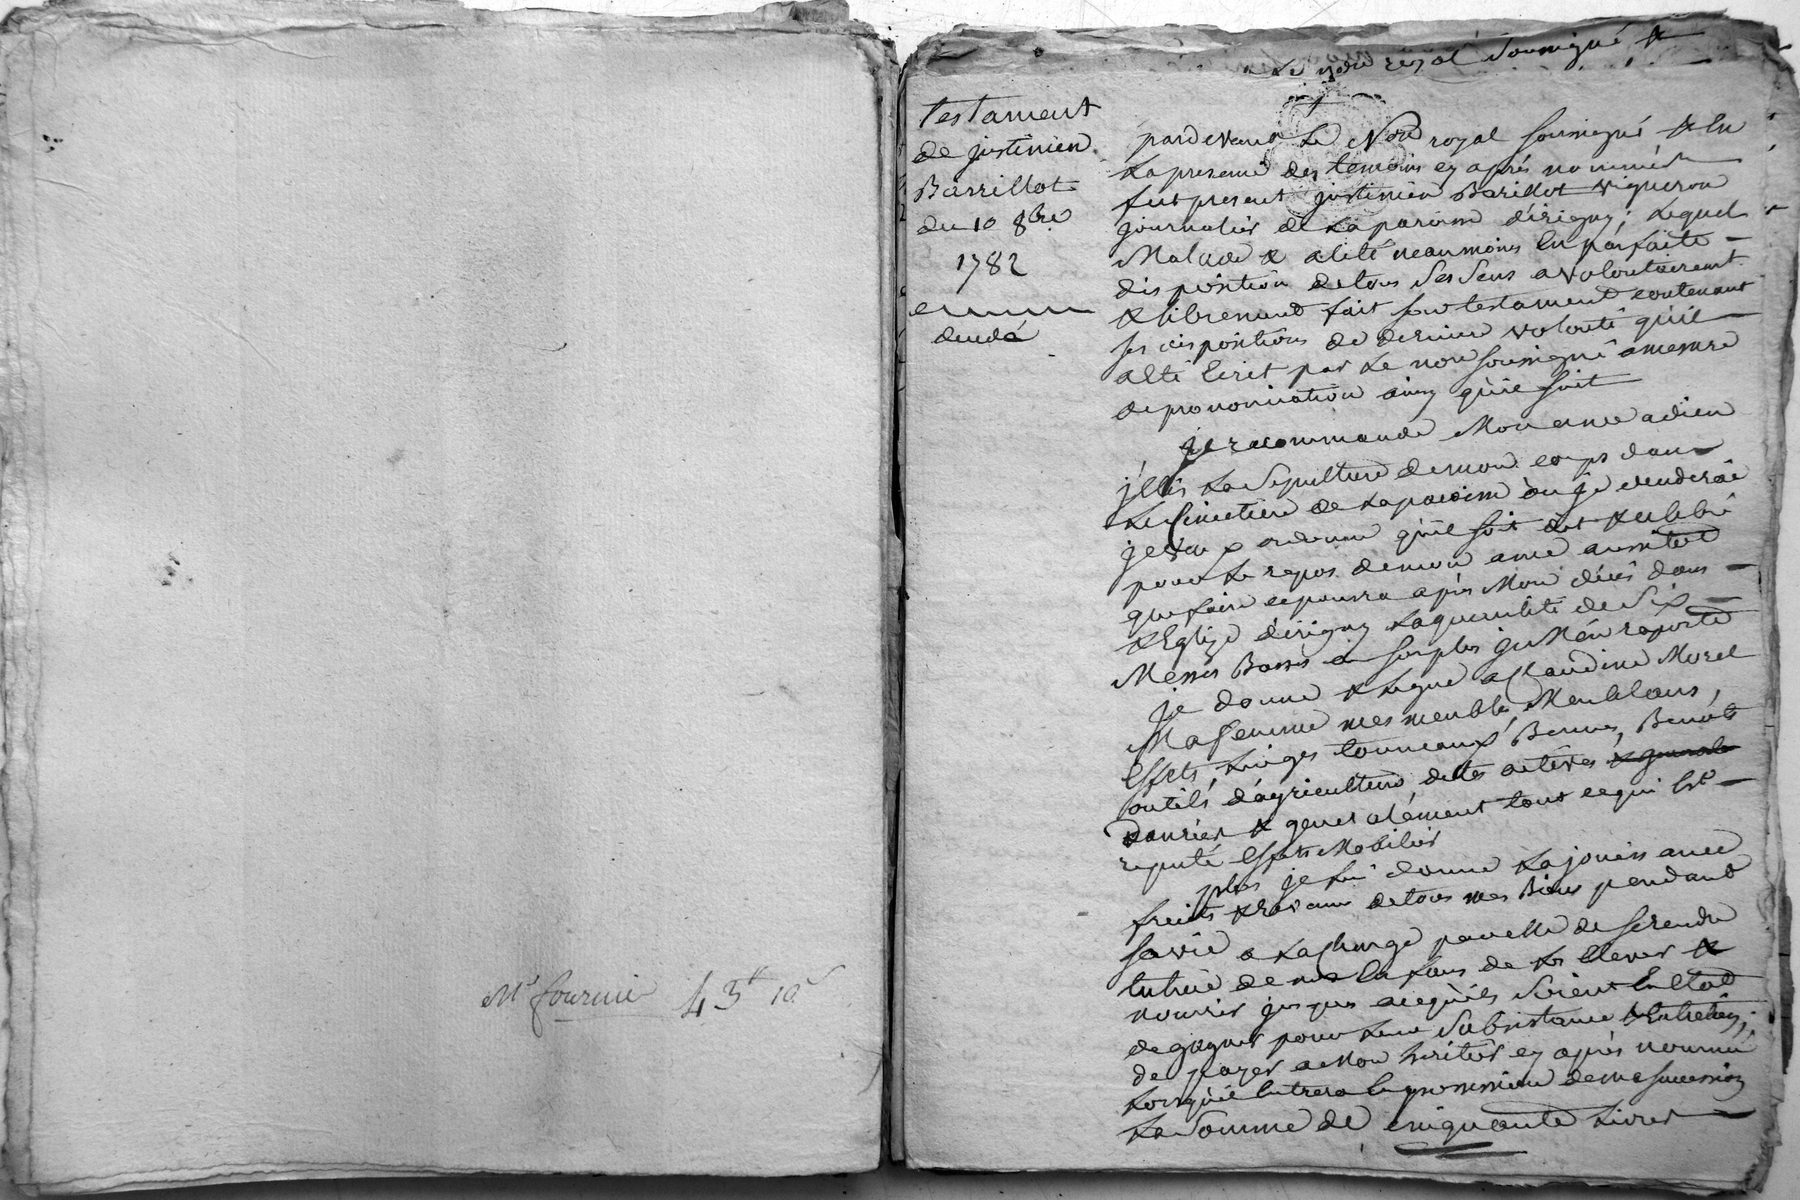 Mr fournie 43# 10s
Le nore royal Soussigné &
testament
de justinien
Barrillot
du 10 8bre
1782
pardevant Le Nore royal soussigné & En
La presence des temoins cy après nommés
fut present justinien Barillot vigneron
journalier de La paroisse d'érigny; Lequel
Malade & alité neanmoins En parfaite
disposition de tous ses sens a volontairement
& librement fait son testament contenant
ses dispositions de derniere volonté qu'il
a Eté Ecrit par Le nore soussigné a mesure
de prononciation ainsy qu'il suit
je recommande Mon ame a dieu
j'Ellis La sepulture de mon corps dans
Le Cimetiere de La paroisse ou je deuderai
je veux & ordonne qu'il soit dit & celebré
pour Le repos de mon ame aussitot
que faire ce pourra après Mon décès dans
L'Eglize d'érigny La quantité de Six
Messes Basses au surplus je M'en raporte
je donne & Legue a Claudine Morel
Ma femme mes meubles, Meublans,
Effets, Linges tonneaux, Bennes, Benots
outils d'agriculture, dettes actives
danrées & generalement tout ce qui Est
reputé Effets Mobiliers
plus je lui donne La jouissance
fruits & Revenus de tous mes Biens pendant
sa vie a La Charge par elle de se rendre
tutrice de nos Enfans de Les Elever &
nourrir jusques acequ'ils soient En Etat
de gagner pour Leur Subsistance & Entretien;
de payer a Mon heritier cy après nommé
Lorsqu'il Entrera En possession de ma succession
La Somme de cinquante Livres